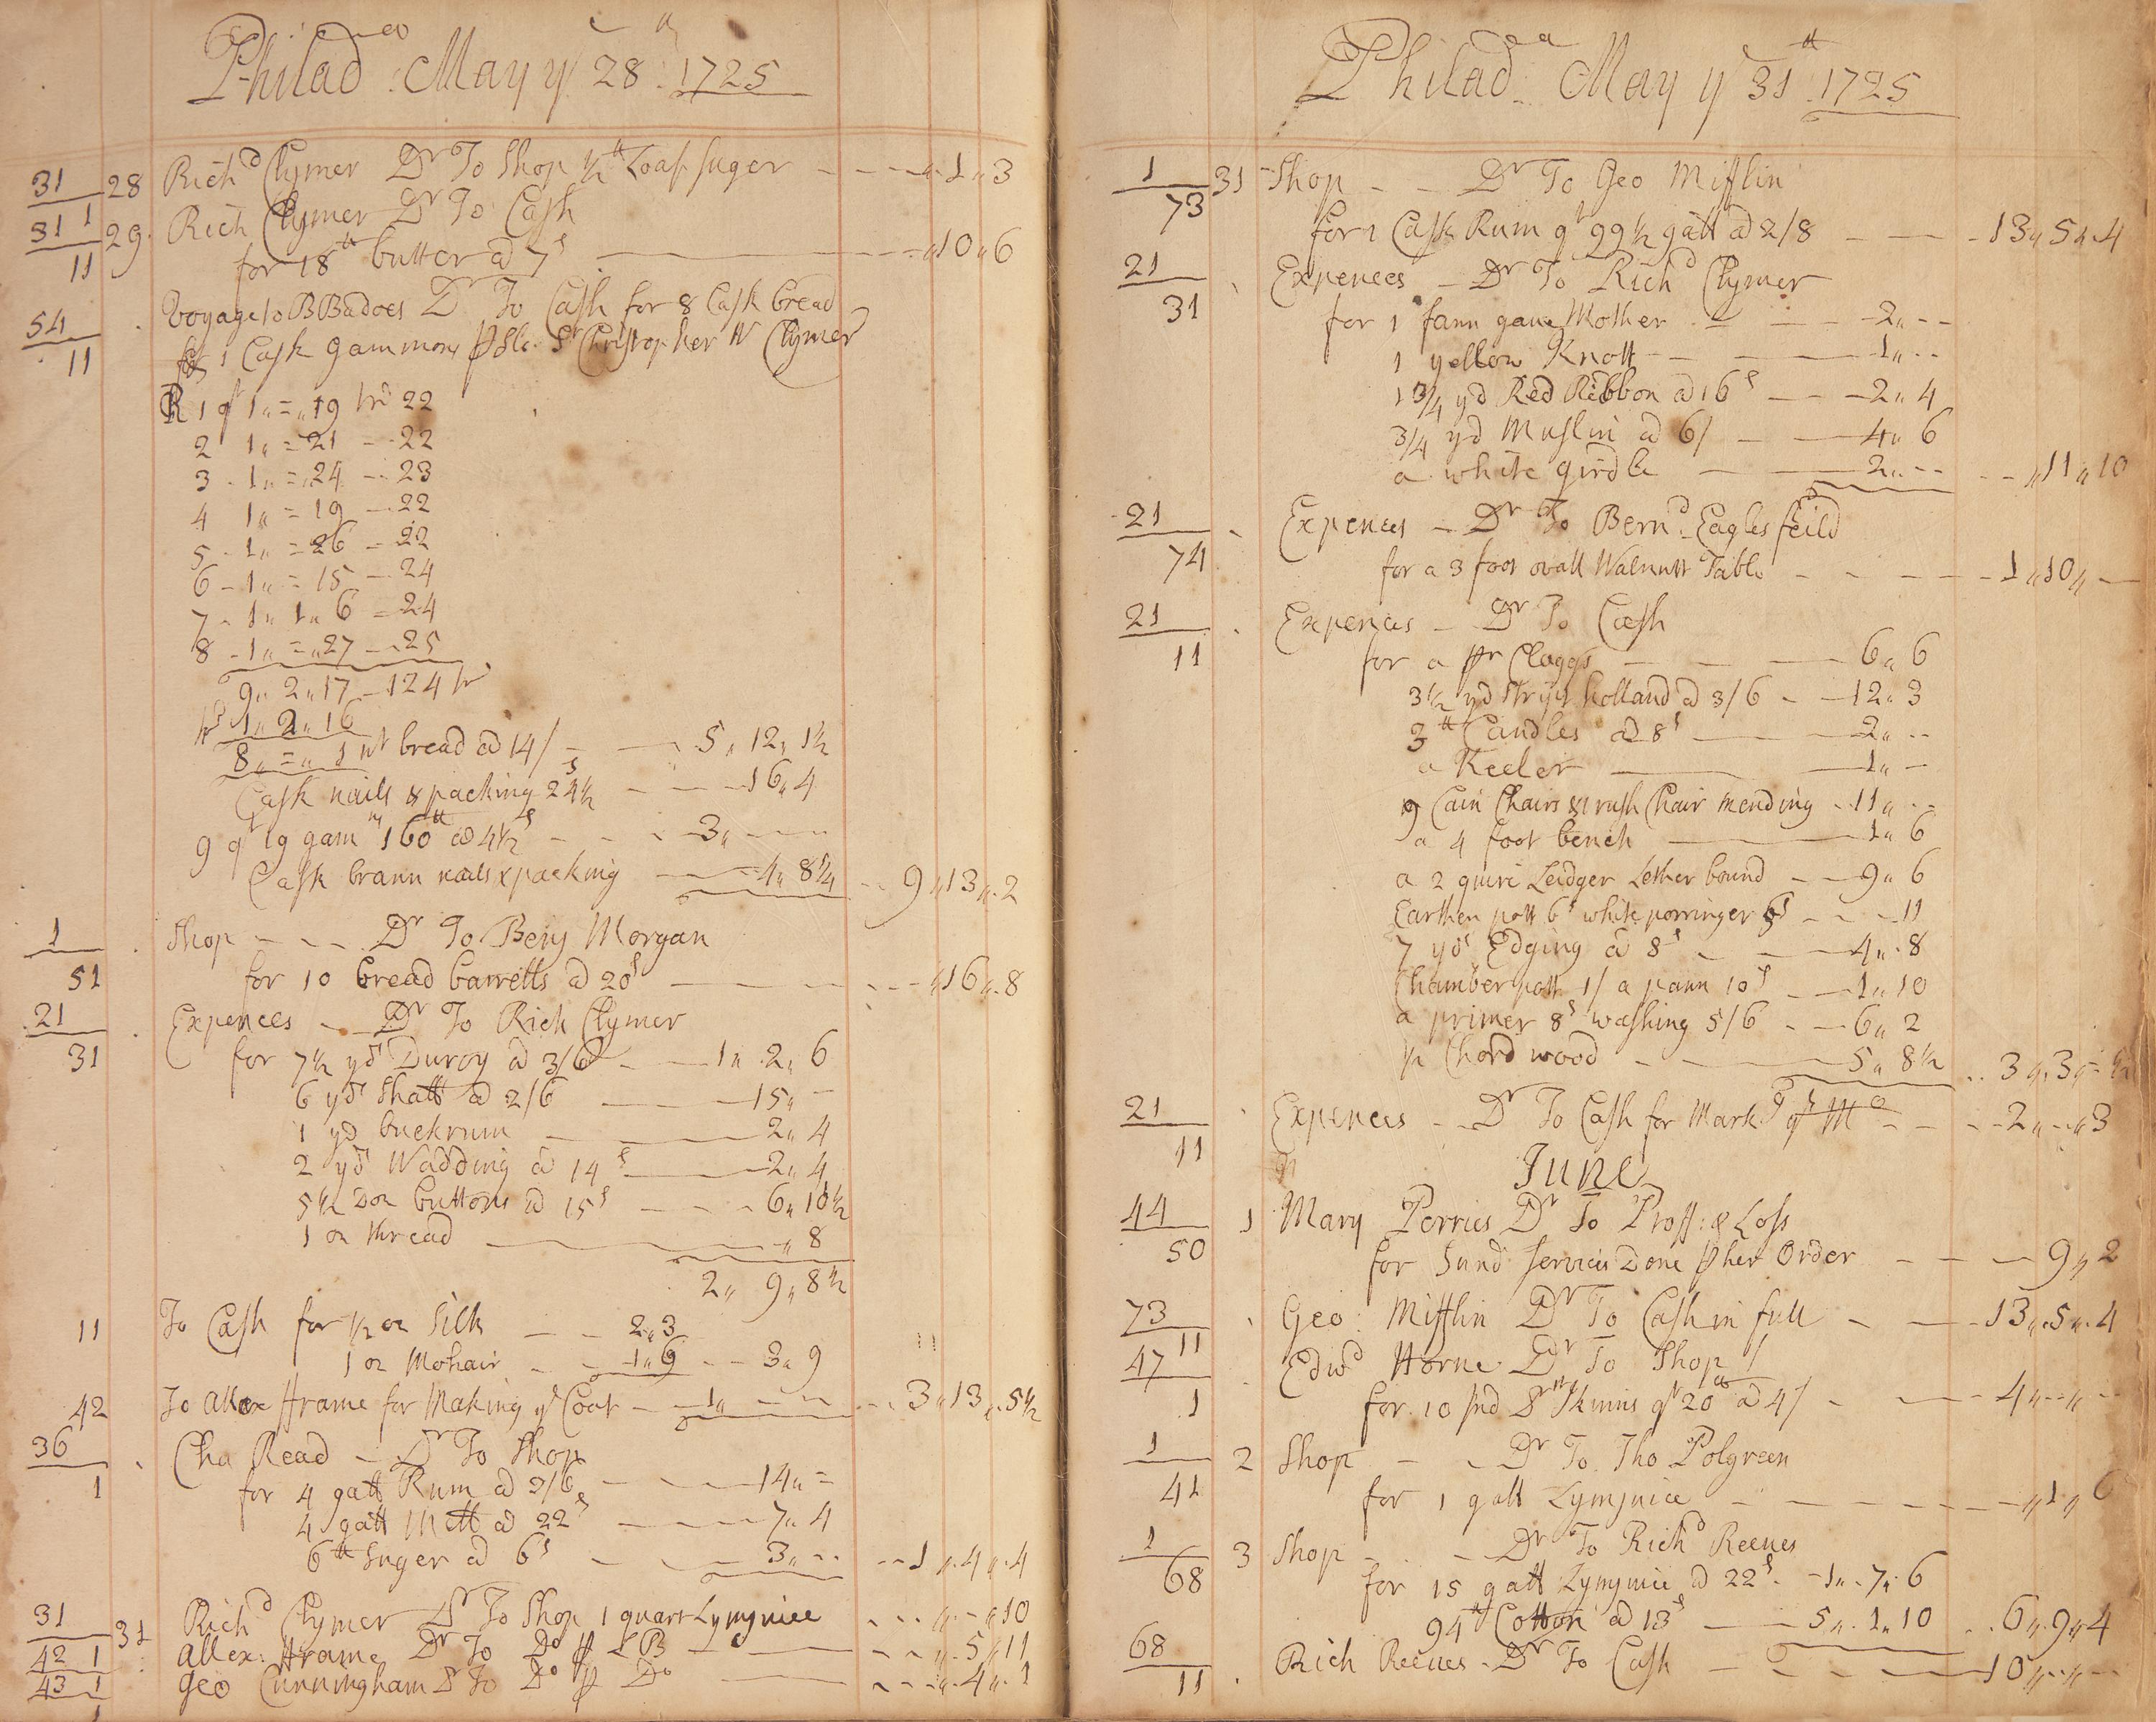 Philad.ª May yᵉ 28ᵗʰ 1725
31 28 Richᵈ Clymer Dʳ To Shop ½ ˡᵗ Loaf Suger 1 „ 3
31 1 29 Rich Clymer Dʳ To Cash
11 for 18 ˡᵗ butter @ 7ᵈ „ 10 „ 6
54 Voyage to BBadoes Dʳ To Cash for 8 Cask bread
11 1 Cask Gammons Christopher Clymer
1 qᵗ 1 „ = „ 19 22
2 1 „ = 21 - 22
3 - 1 „ = 24 - 23
4 1 „ = 19 - 22
5 - 1 „ = 26 - 22
6 - 1 „ = 15 - 24
7 - 1 „ 1 „ 6 = 24
8 - 1 „ = „ 27 - 25
9 „ 2 „ 17 - 124
1 „ 2 „ 16
8 „ = „ 1 bread @ 14/ 5 „ 12 „ 1½
Cask nails & packing 24½ 16 „ 4
9 qᵗ 19 gam 160 ˡᵗ @ 4½ᵈ 3 „
Cask brann nails & packing 4 „ 8¼ 9 „ 13 „ 2
1 Shop Dʳ To Benj Morgan
51 for 10 bread barrells @ 20ᵈ „ 16 „ 8
21 Expences Dʳ To Rich Clymer
31 for 7½ yᵈˢ Duroy @ 3/6 1 „ 2 „ 6
6 yᵈˢ Shall @ 2/6 15 „ -
1 yd buckrum 2 „ 4
2 yᵈˢ Wadding @ 14ᵈ 2 „ 4
5½ Doz buttons @ 15ᵈ 6 „ 10½
1 oz thread „ 8
2 „ 9 „ 8½
11 To Cash for ½ oz Silk 2 „ 3
1 oz Mohair 1 „ 6 3 „ 9
42 To Allex Frame for Making yᵉ Coat 1 „ 3 „ 13 „ 5½
36 Cha Read Dʳ To Shop
1 for 4 gall Rum @ 3/6 14 „ =
4 gall Mell @ 22ᵈ 7 „ 4
6 ˡᵗ Suger @ 6ᵈ 3 „ -- 1 „ 4 „ 4
31 31 Richᵈ Clymer Dʳ To Shop 1 quart Lymjuice „ - „ 10
42 1 Allex: Frame Dʳ To Dº ⅌ LB „ 5 „ 11
43 1 Geo Cunningham Dʳ To Dº ⅌ Dº „ 4 „ 1
1
Philad.ª May yᵉ 31ᵗʰ 1725
1 31 Shop Dʳ To Geo Mifflin
73 for 1 Cask Rum qᵗ 99½ gall @ 2/8 13 „ 5 „ 4
21 Expences Dʳ To Richᵈ Clymer
31 for 1 fann gave Mother 2 „ --
1 yellow Knott 1 „ --
1¾ yd Red Ribbon @ 16ᵈ 2 „ 4
¾ yd Muslin @ 6/ 4 „ 6
a white girdle 2 „ -- „ 11 „ 10
21 Expences Dʳ To Bernᵈ Eaglesfeild
74 for a 3 foot ovall Walnutt Table 1 „ 10 „
21 Expences Dʳ To Cash
11 for a pʳ Cloggs 6 „ 6
3½ yd stript holland @ 3/6 12 „ 3
3 ˡᵗ Candles @ 8ᵈ 2 „ --
a Keeler 1 „ -
9 Cain Chairs & 1 rush Chair mending 11 „ --
a 4 foot bench 1 „ 6
a 2 quire Leidger Lether bound 9 „ 6
Earthen pott 6ᵈ white porringer 5ᵈ 11
7 yᵈˢ Edging @ 8ᵈ 4 „ 8
Chamber pott 1/ a pann 10ᵈ 1 „ 10
a primer 8ᵈ washing 5/6 6 „ 2
½ Chord wood 5 „ 8½ 3 „ 3 „ - ½
21 Expences Dʳ To Cash for Mark 2 „ - „ 3
11
June
44 1 Mary Perries Dʳ To Proff: & Loss
50 for Sund Services Done ⅌ her Order 9 „ 2
73 Geo: Mifflin Dʳ To Cash in full 13 „ 5 „ 4
11
47 Edwᵈ Horne Dʳ To Shop
1 for 10 Skinns qᵗ 20 ˡᵗ @ 4/ 4 „ -- „ --
1 2 Shop Dʳ To Tho Polgreen
41 for 1 gall Lymjuice „ 1 „ 6
1 3 Shop Dʳ To Richᵈ Reeves
68 for 15 gall Lymjuice @ 22ᵈ 1 „ 7 „ 6
94 ˡᵗ Cotton @ 13ᵈ 5 „ 1 „ 10 6 „ 9 „ 4
68 Rich Reeves Dʳ To Cash 10 „ -- „ --
11